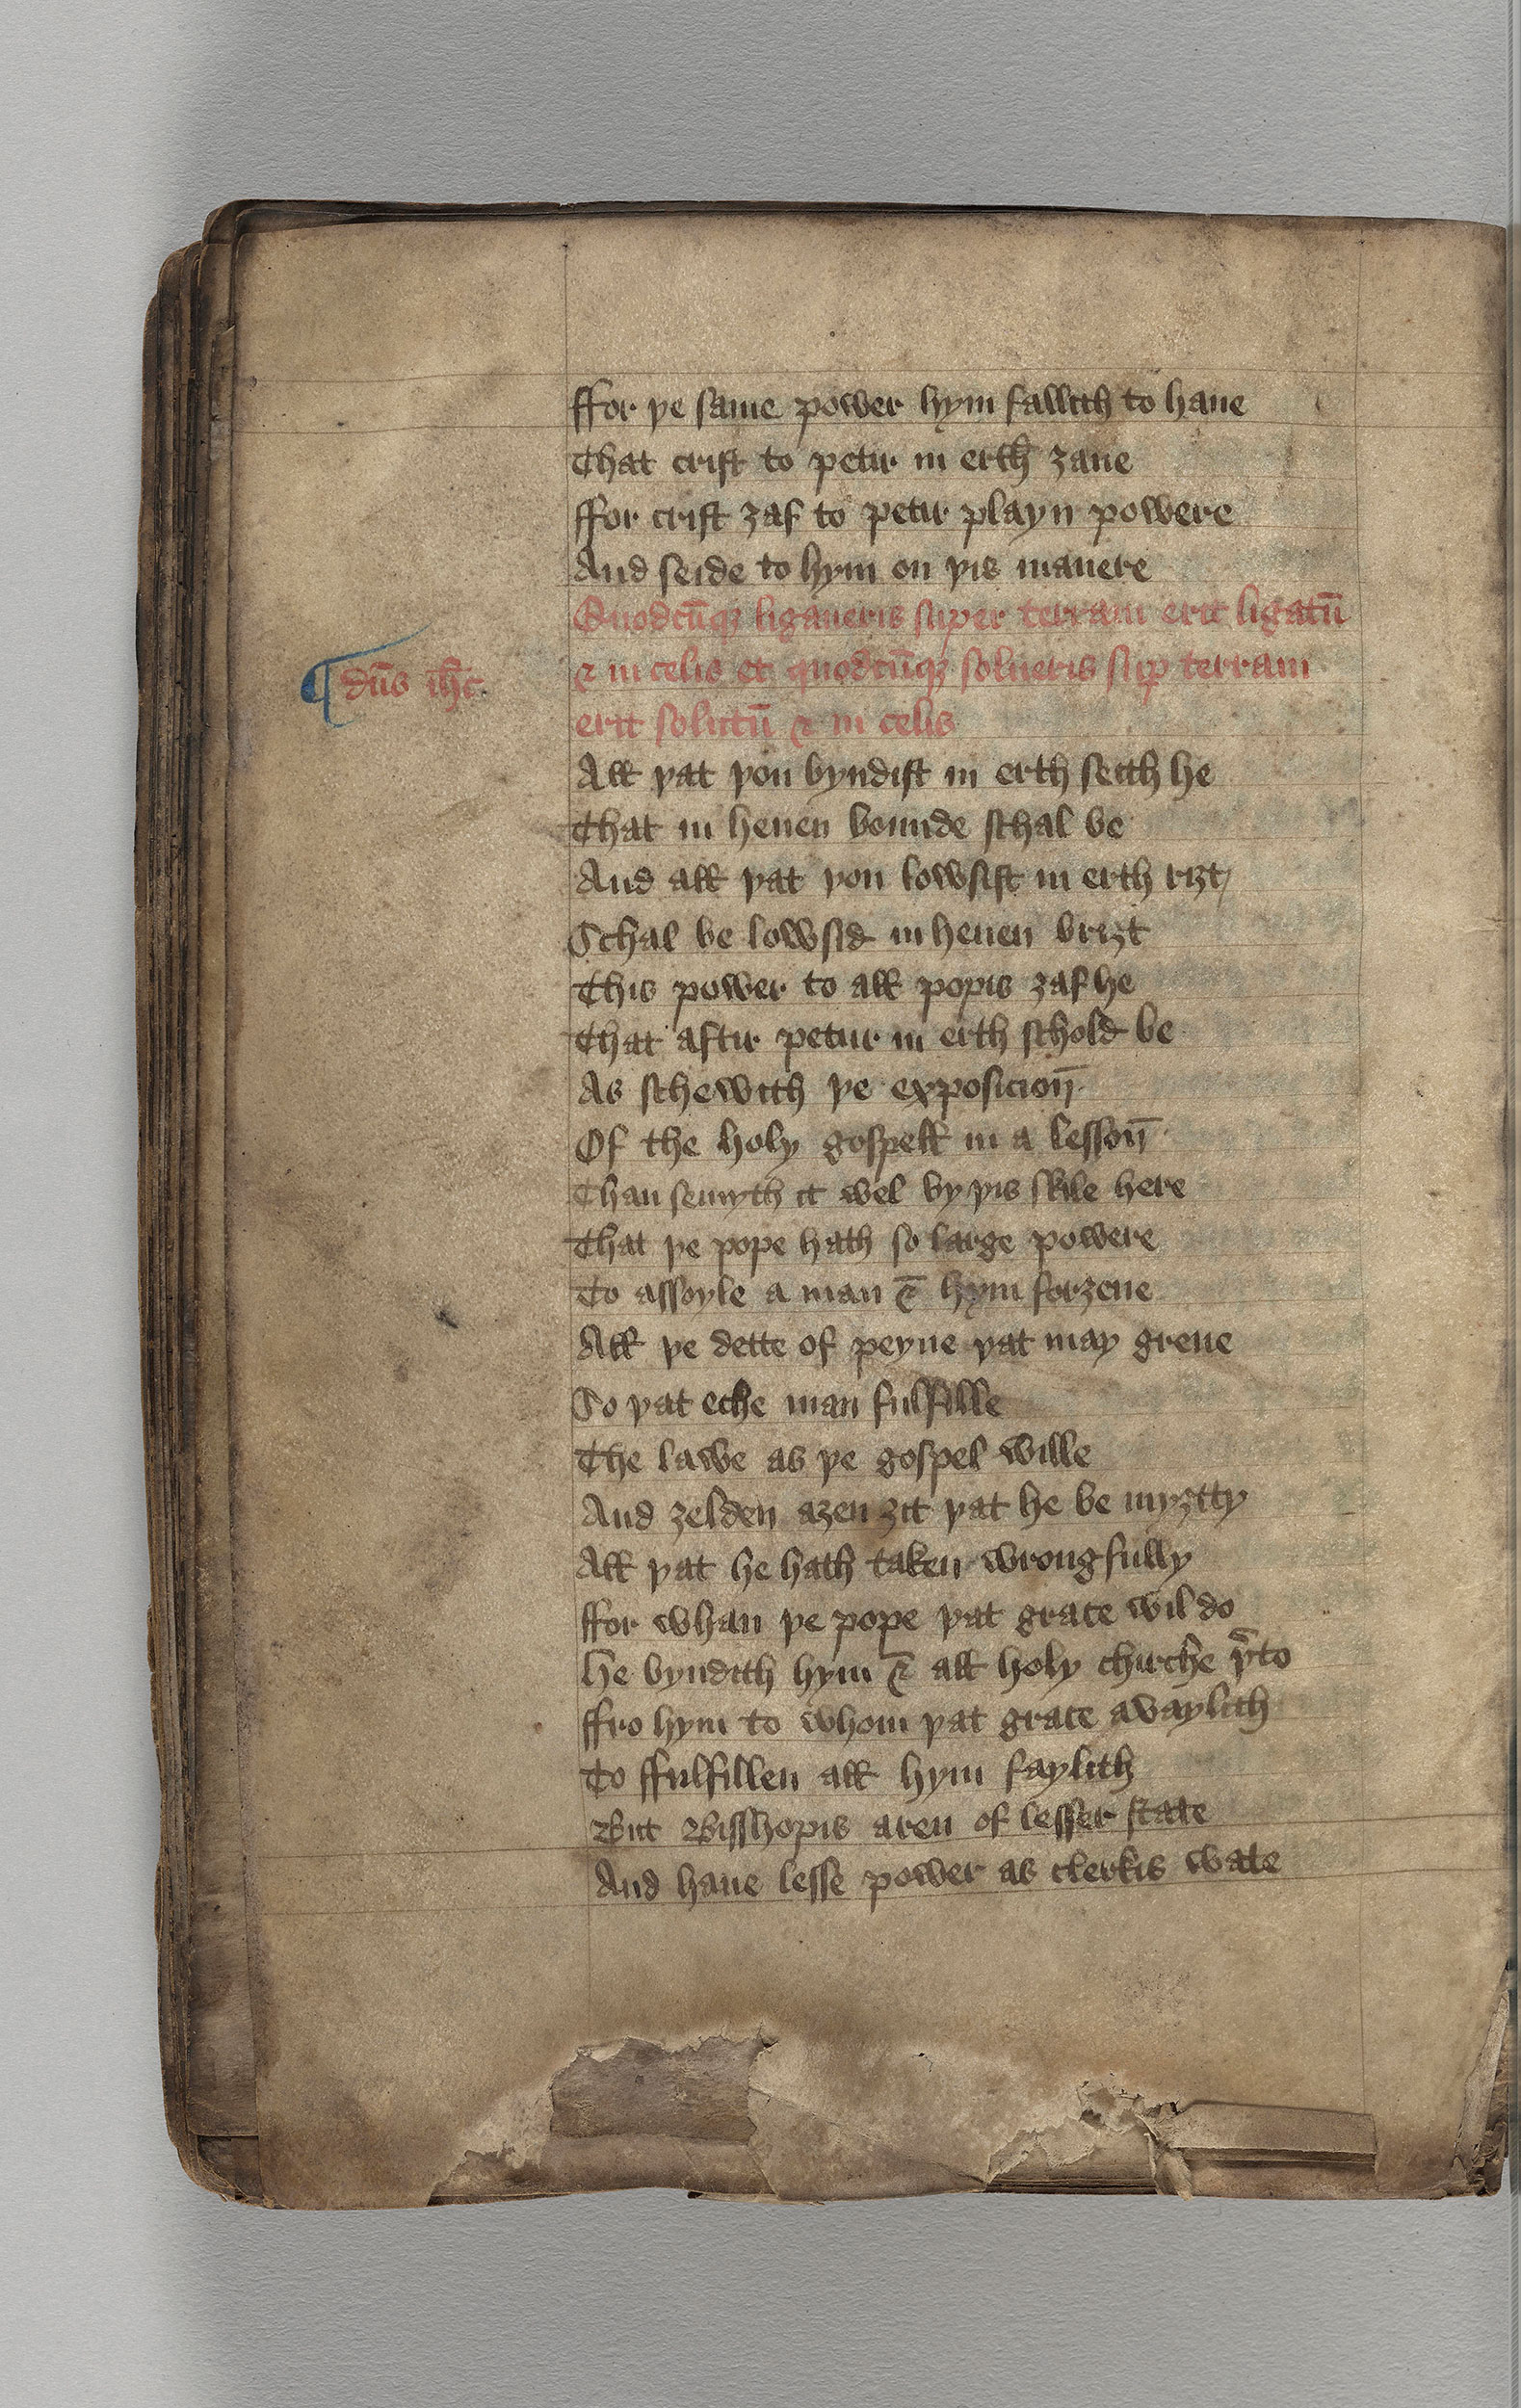 ffor þe same power hym fallith to haue
That crist to petir in erth ȝaue
ffor crist ȝaf to petir playn powere
And seide to hym on þis manere
Quodcūqꝫ ligaueris super terram erit ligatū
⁊ in celis et quodcūqꝫ solueris suꝑ terram
dn̄s ih̄c
erit solutū ⁊ in celis
All þat þou byndist in erth seith he
That in heuen bounde schal be
And all þat þou lowsist in erth riȝt
Schal be lowsid in heuen briȝt
This power to all popis ȝaf he
That aftir petur in erth schold be
As schewith þe exposicion̄
Of the holy gospell in a lesson̄
Than semyth it wel by þis skile here
That þe pope hath so large powere
To assoyle a man ⁊ hym forȝeue
All þe dette of peyne þat may greue
So þat eche man fulfille
The lawe as þe gospel wille
And ȝelden aȝen ȝit þat he be myȝtty
All þat he hath taken wrongfully
ffor whan þe pope þat grace wil do
He byndith hym ⁊ all holy chirche þ͛to
ffro hym to whom þat grace avaylith
To ffulfillen all hym faylith
But Bisshopis aren of lesser state
And haue lesse power as clerkis wate